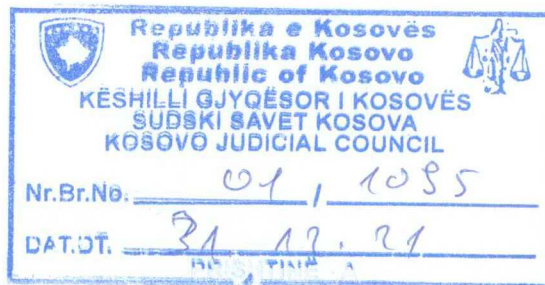 Republika e Kosovës
Republika Kosovo
Republic of Kosovo
KËSHILLI GJYQËSOR I KOSOVËS
SUDSKI SAVET KOSOVA
KOSOVO JUDICIAL COUNCIL
Nr.Br.No. 01 / 1095
DAT.DT. 31 12. 21
PRISHTINË - A